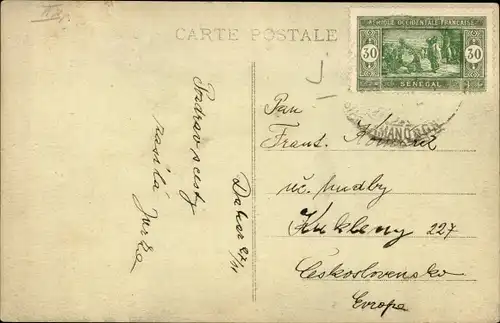 CARTE POSTALE
AFRIQUE OCCIDENTALE FRANÇAISE
30 30
SÉNÉGAL
Pozdrav s cesty
zasílá Jurka
Dakar 27/11
Pan
Frant.
uč. hudby
Kukleny 227
Československo
Evropa